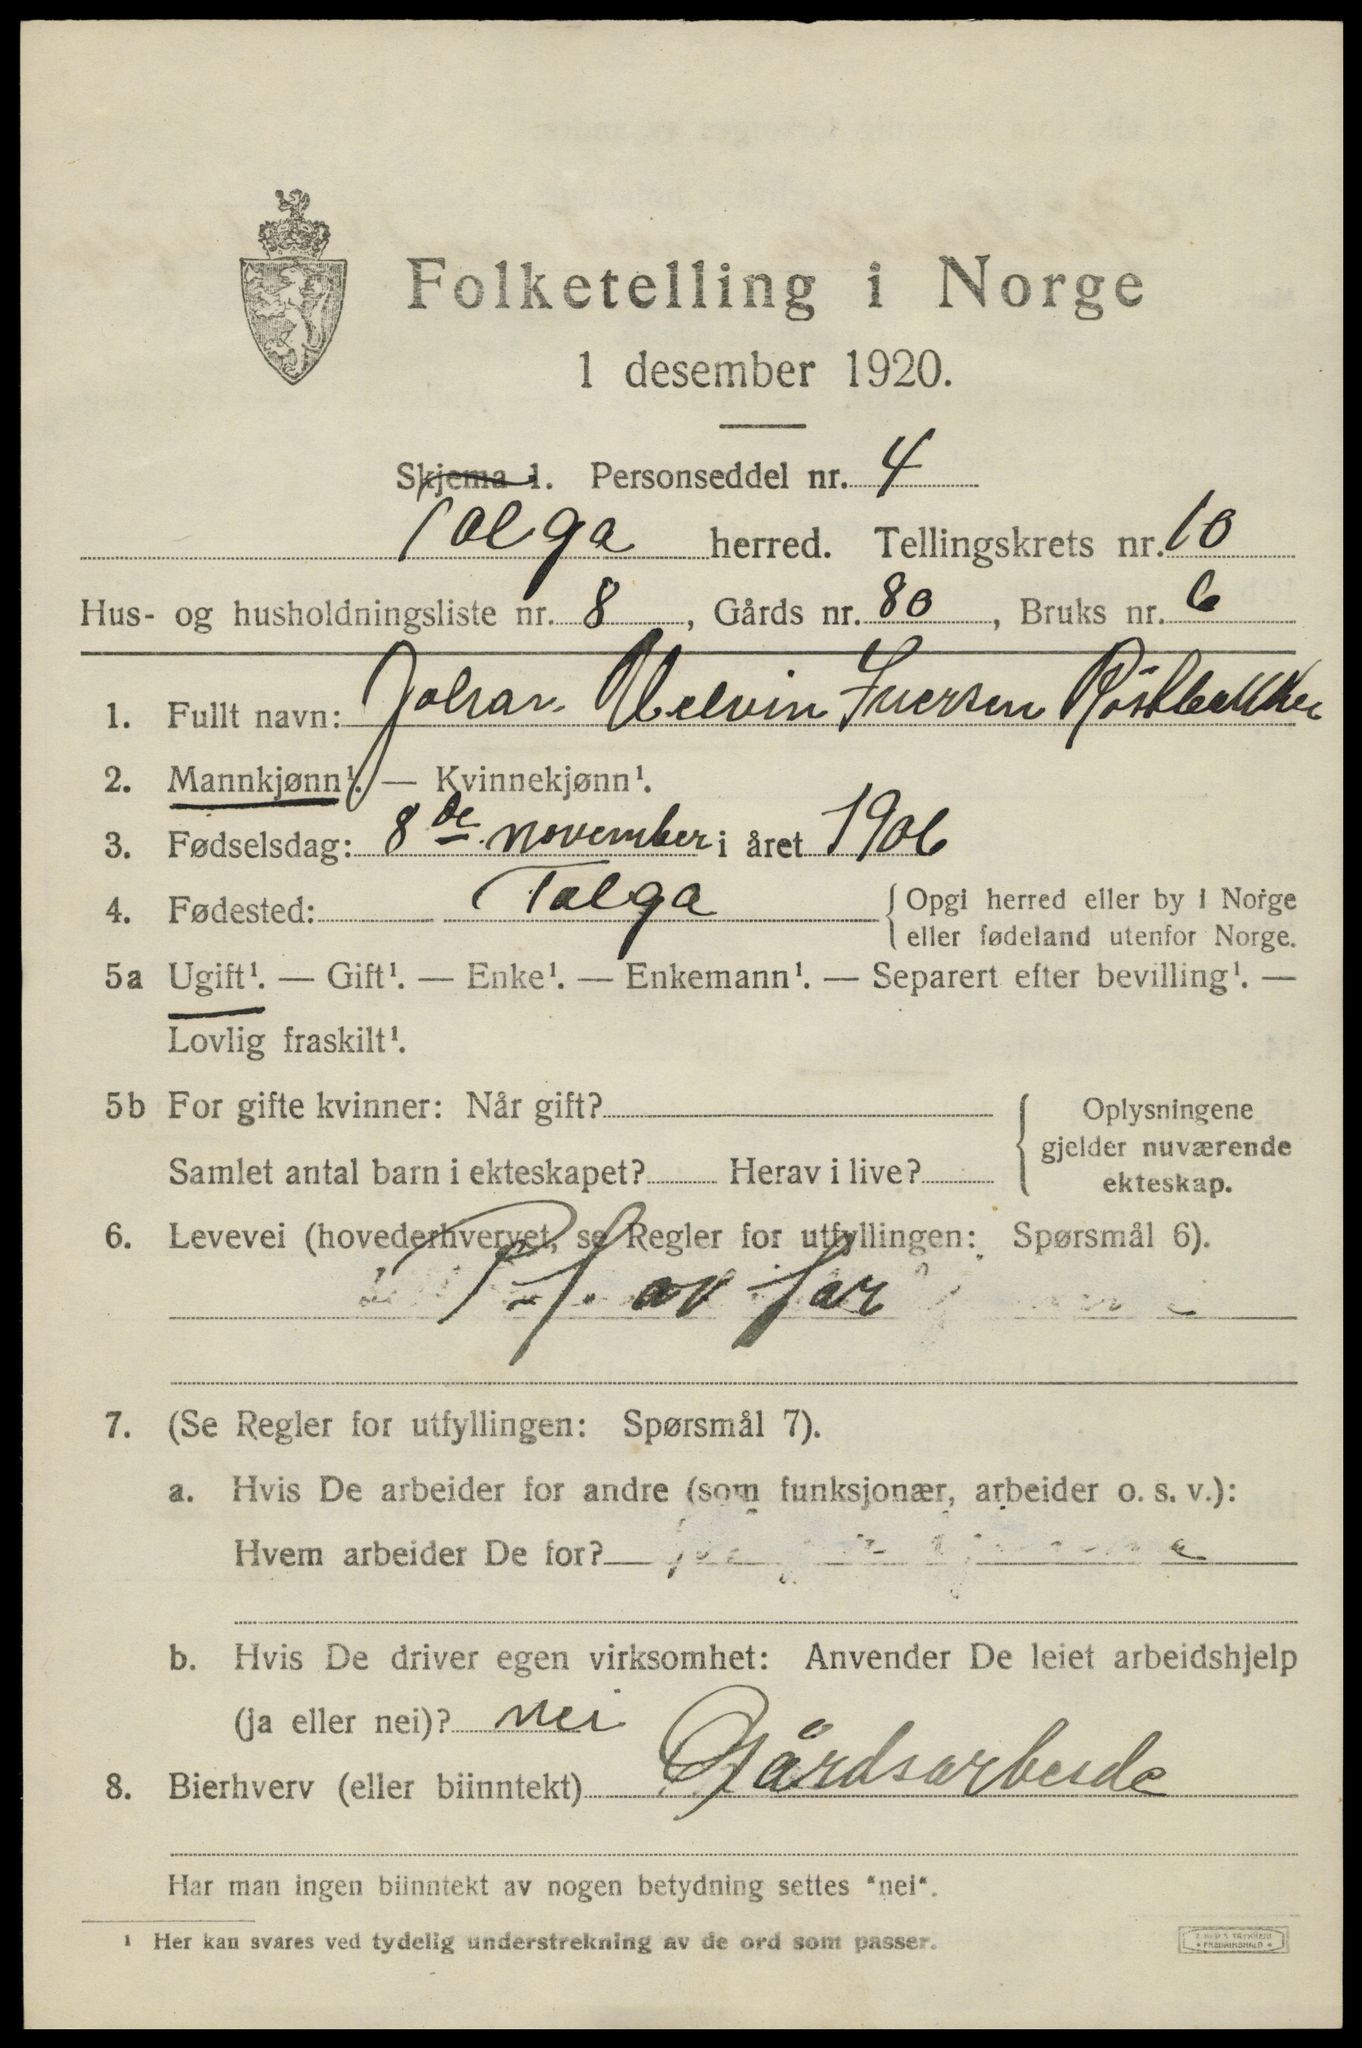 Folketelling i Norge
1 desember 1920.
Skjema 1. Personseddel nr. 4
Tolga herred. Tellingskrets nr. 10
Hus- og husholdningsliste nr. 8, Gårds nr. 80, Bruks nr. 6
1. Fullt navn: Johan Melvin Iversen Røstbakken
2. Mannkjønn¹. — Kvinnekjønn¹.
3. Fødselsdag: 8de november i året 1906
4. Fødested: Tolga {Opgi herred eller by i Norge
eller fødeland utenfor Norge.
5a Ugift¹. — Gift¹. — Enke¹. — Enkemann¹. — Separert efter bevilling¹. —
Lovlig fraskilt¹.
5b For gifte kvinner: Når gift? { Oplysningene
gjelder nuværende
Samlet antal barn i ekteskapet? Herav i live? ekteskap.
6. Levevei (hovederhvervet, se Regler for utfyllingen: Spørsmål 6).
P.f. av far
7. (Se Regler for utfyllingen: Spørsmål 7).
a. Hvis De arbeider for andre (som funksjonær, arbeider o. s. v.):
Hvem arbeider De for?
b. Hvis De driver egen virksomhet: Anvender De leiet arbeidshjelp
(ja eller nei)? nei
8. Bierhverv (eller biinntekt) Gårdsarbeide
Har man ingen biinntekt av nogen betydning settes "nei".
¹ Her kan svares ved tydelig understrekning av de ord som passer.